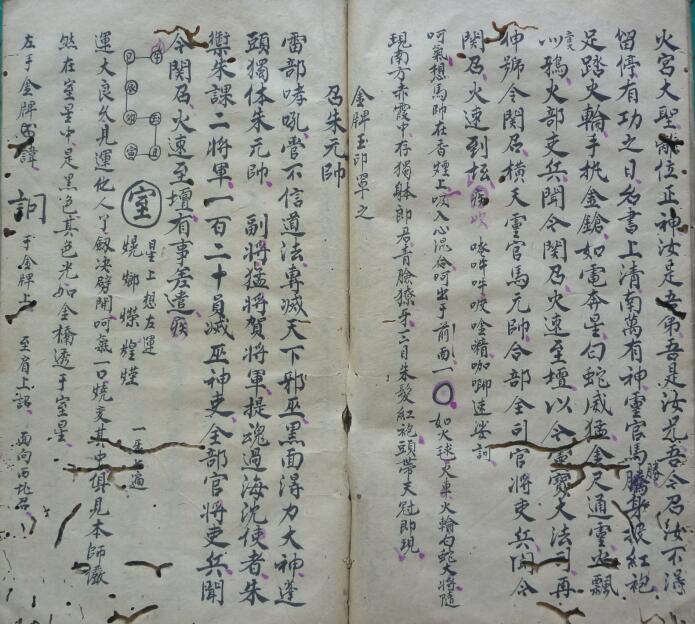 火宮大聖離位正神汝是吾弟吾是汝兄吾今召汝不得
留停有功之日名書上清南萬有神靈官馬勝身披紅袍
足踏火輪手执金鎗如電奔星白蛇威猛金尺通靈火飄
火鴉火部吏兵聞令関召火速至壇以令靈寶大法司再
伸號令関召橫天靈官馬元帥合部全司官將吏兵聞令
関召火速到坛
呵氣想馬帥在香煙上吸入心混合呵出于前面一〇如火球火車火輪白蛇大將隨
現南方赤霞中存獨躰郎君青臉獠牙三目朱髮紅袍頭帶天冠即現
金牌玉印罩之
召朱元帥
雷部哮吼嘗不信道法專滅天下邪巫黑面淂力大神蓬
頭獨体朱元帥 副將猛將賀將軍提魂過海沈使者朱
禦朱課二將軍一百二十員滅巫神吏全部官將吏兵聞
令関召火速至壇有事差遣疾
室 星上想左運
一座七遍
運大良久見運他人了劔决劈開呵氣一口燒交其中俱見本師儼
然在室星中是黑色其色光如金橋透于室星
左手金牌 諱 手金牌上 至肩上 面向西北召